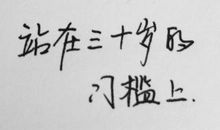 站在三十岁的
门槛上.